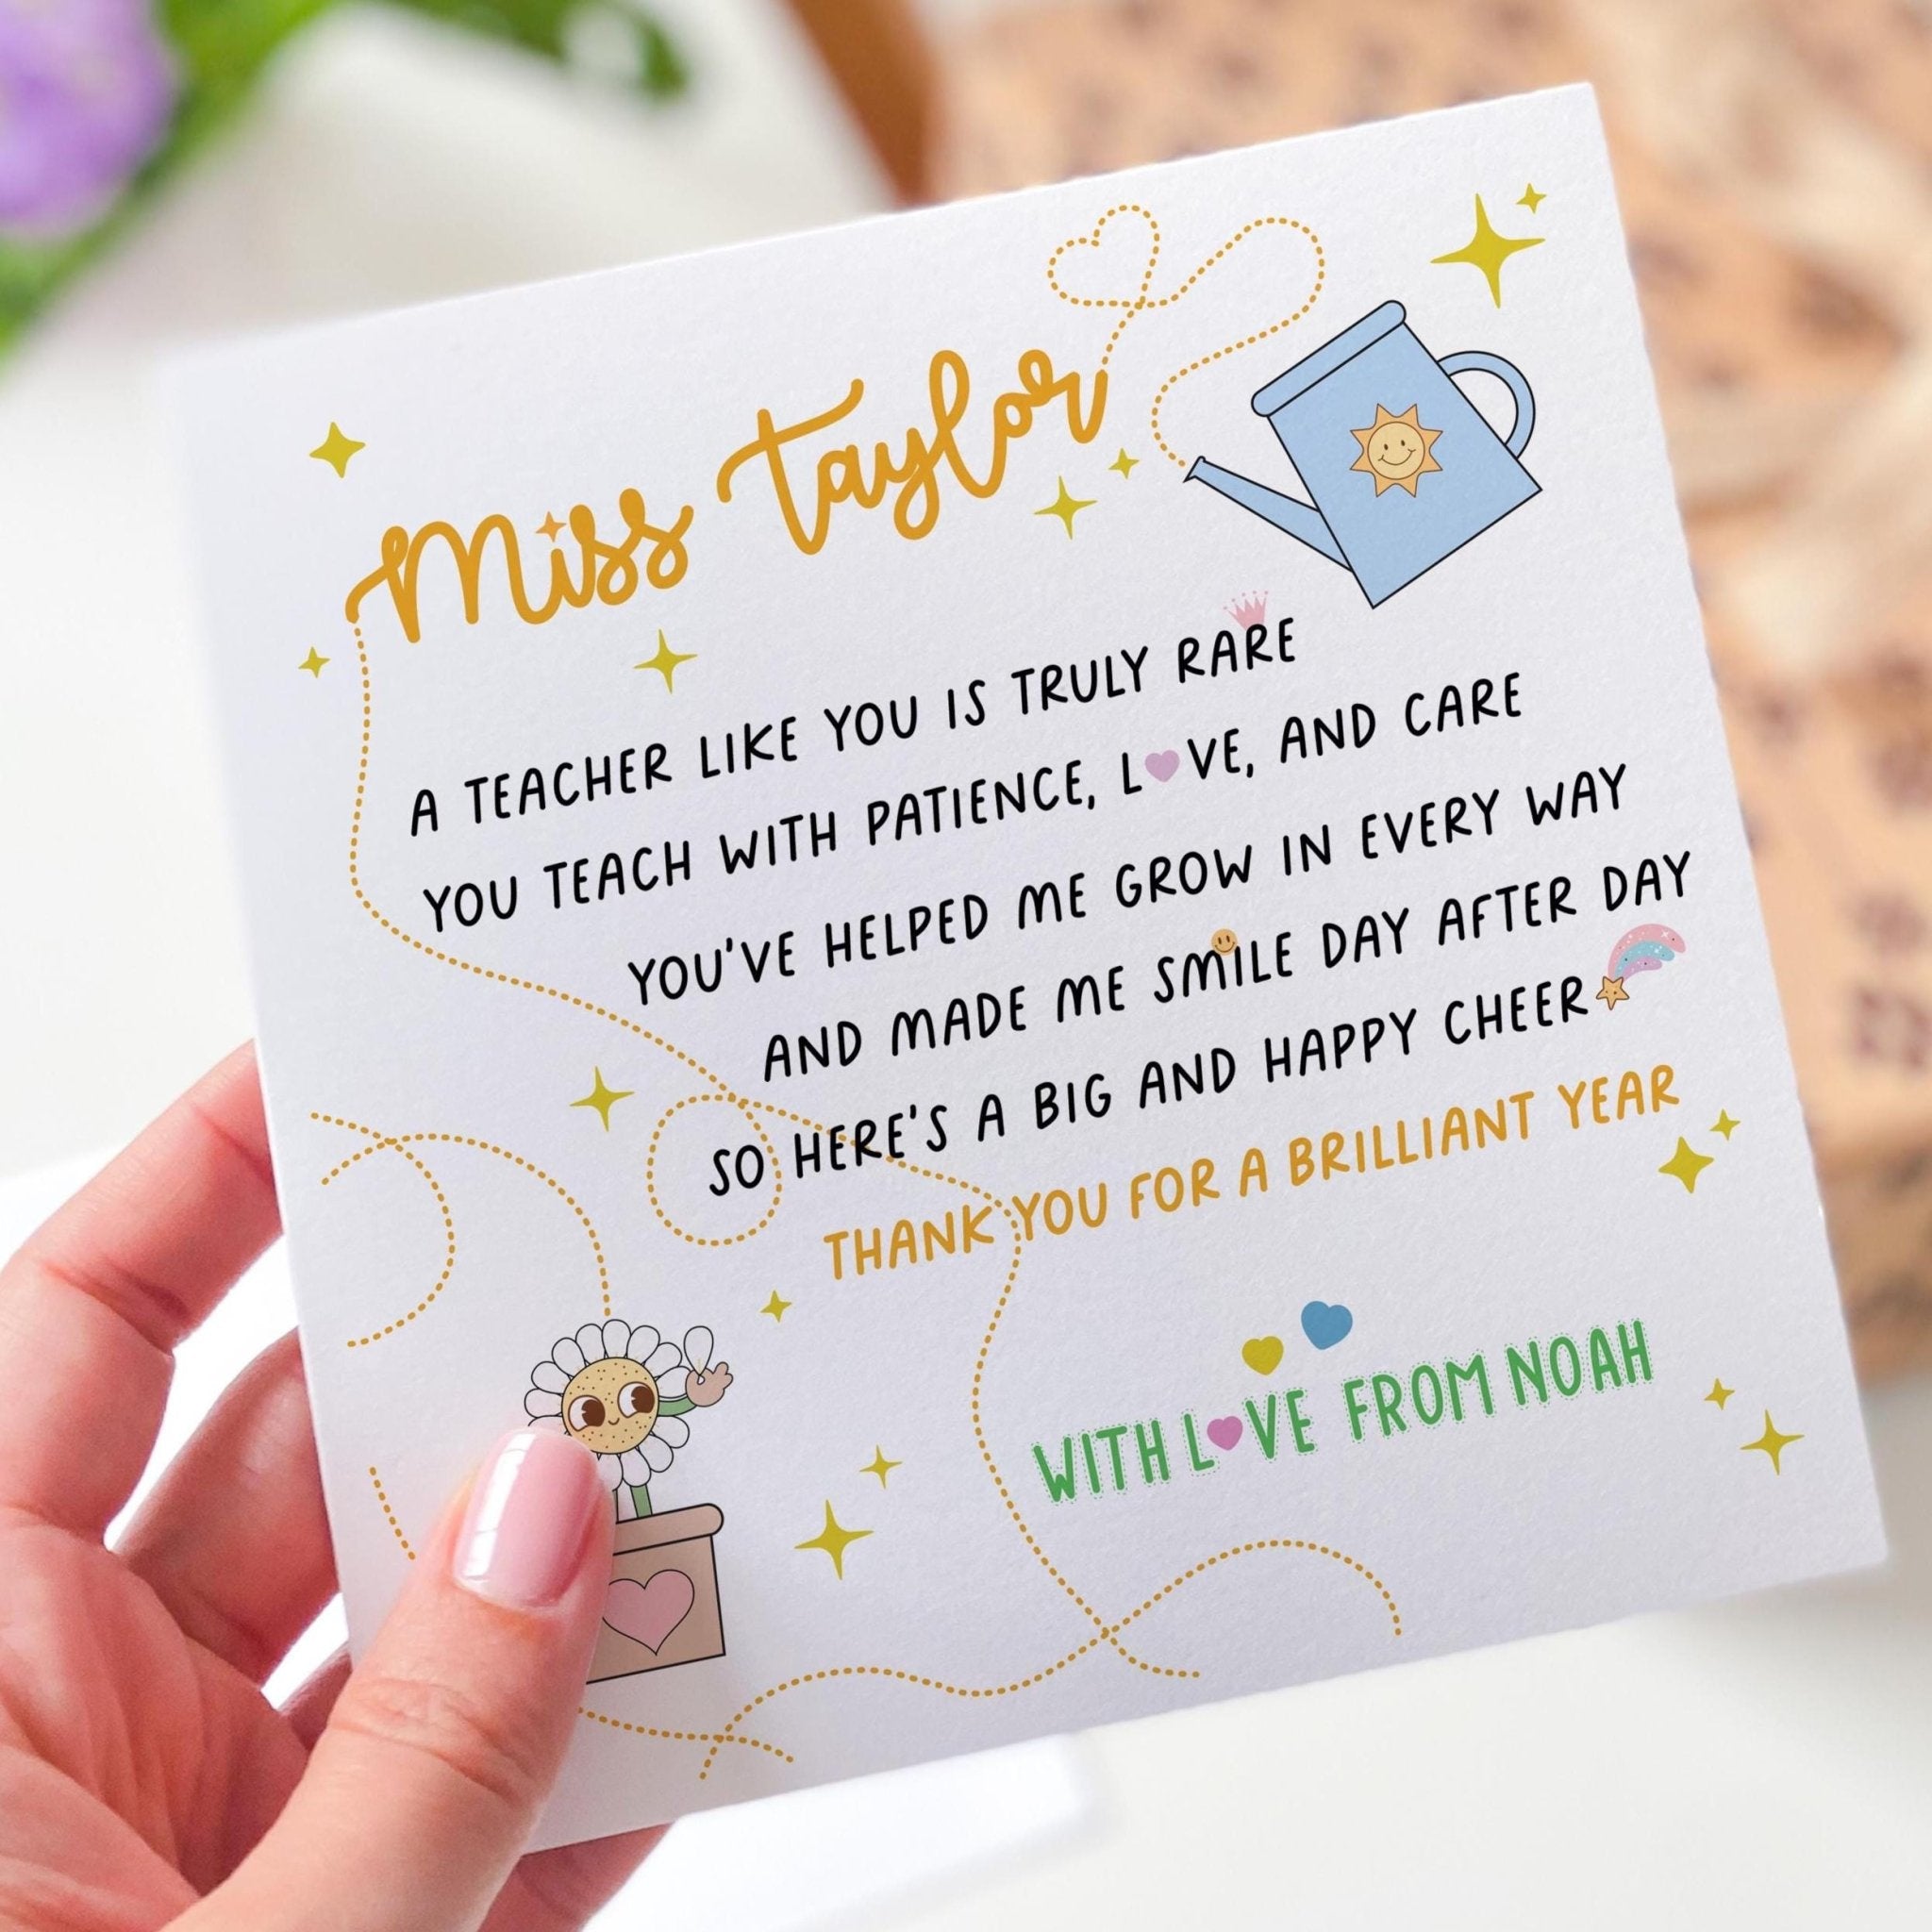 Miss Taylor
A TEACHER LIKE YOU IS TRULY RARE
YOU TEACH WITH PATIENCE, LOVE, AND CARE
YOU'VE HELPED ME GROW IN EVERY WAY
AND MADE ME SMILE DAY AFTER DAY
SO HERE'S A BIG AND HAPPY CHEER
THANK YOU FOR A BRILLIANT YEAR
WITH LOVE FROM NOAH